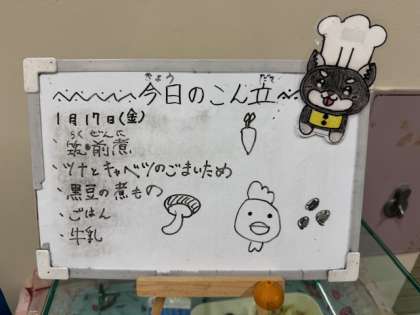 きょう だて
今日のこん立
1月17日(金)
ちくぜんに
・筑前煮
・ツナとキャベツのごまいため
・黒豆の煮もの
・ごはん
・牛乳